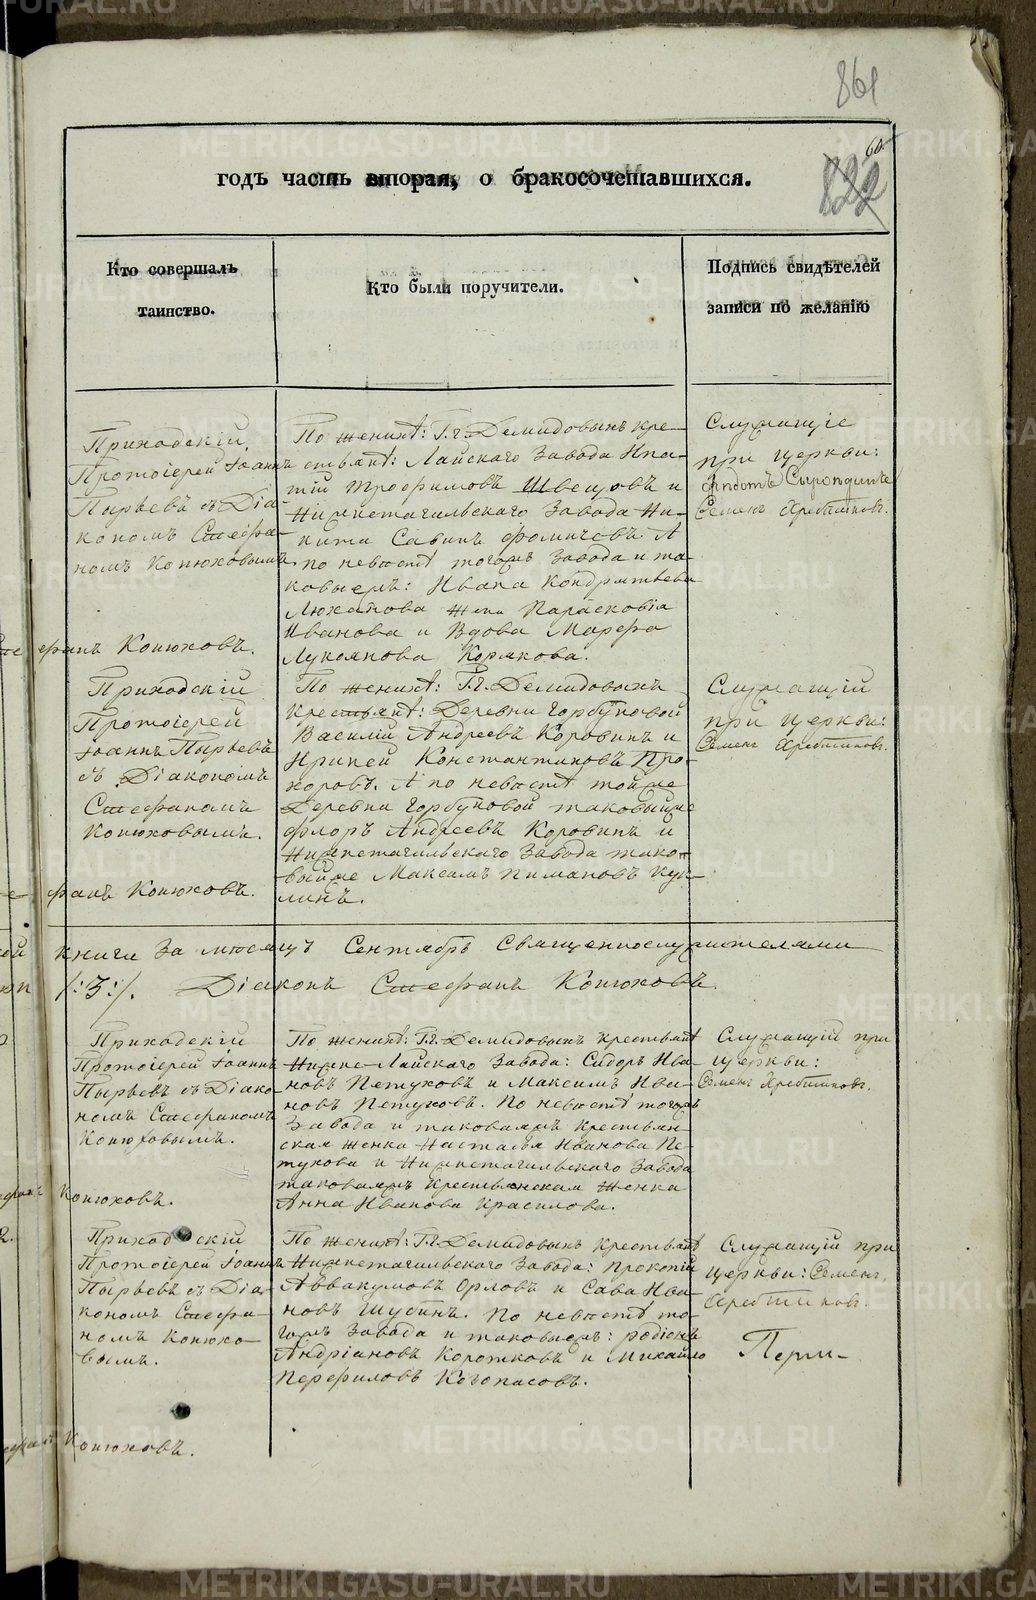 861
60
822
годъ часть вторая, о бракосочетавшихся.
Кто совершалъ
таинство.
Кто были поручители.
Подпись свидѣтелей
записи по желанію
Приходскій
Протоіерей Іоаннъ
Пырьевъ съ Діа-
кономъ Стефа-
номъ Конюховымъ
фанъ Конюховъ.
По женихѣ: Г.г. Демидовыхъ кре-
стьянѣ: Лайскаго Завода Ипа-
тій Трофимовъ Швецовъ и
Нижнетагильскаго Завода Ни-
кита Савинъ Фомичевъ. А
по невѣстѣ тогожъ Завода и та-
ковыежъ: Ивана Кондратьева
жена Парасковія
Иванова и Вдова Марфа
Лукоянова Кормкова.
Служащіе
при церкви:
Семенъ Хребтиковъ.
Приходскій
Протоіерей
Іоаннъ Пырьевъ
съ Діакономъ
Стефаномъ
Конюховымъ.
фанъ Конюховъ.
По женихѣ: Г.г. Демидовыхъ
Крестьянѣ: Деревни Горбуновой
Василій Андреевъ Коровинъ и
Ириней Константиновъ Про-
хоровъ. А по невѣстѣ тойже
Деревни Горбуновой таковыйже
Флоръ Андреевъ Коровинъ и
Нижнетагильскаго Завода тако-
выйже Максимъ Пимановъ Кук-
линъ.
Служащій
при церкви:
Семенъ Хребтиковъ.
книги За мѣсяцъ Сентябрь Священнослужителями
/:3:/. Діаконъ Стефанъ Конюховъ.
Приходскій
Протоіерей Іоаннъ
Пырьевъ съ Діако-
номъ Стефаномъ
Конюховымъ.
Конюховъ.
По женихѣ: Г.г. Демидовыхъ Крестьянѣ
Нижне-Лайскаго Завода: Сидоръ Ива-
новъ Петуховъ и Максимъ Ива-
новъ Петуховъ. По невѣстѣ тогожъ
Завода и таковаяжъ Крестьян-
ская Женка Настасья Иванова Пе-
тухова и Нижнетагильскаго Завода
таковаяжъ Крестьянская Женка
Анна Иванова Красилова.
Служащій при
церкви:
Семенъ Хребтиковъ.
Приходскій
Протоіерей Іоаннъ
Пырьевъ съ Діа-
кономъ Стефа-
номъ Конюхо-
вымъ.
Конюховъ.
По женихѣ: Г.г. Демидовыхъ Крестьянѣ
Нижнетагильскаго Завода: Прокопій
Аввакумовъ Орловъ и Сава Ива-
новъ Шубинъ. По невѣстѣ то-
гожъ Завода и таковыежъ: Родіонъ
Андріановъ Коротковъ и Михайло
Перфиловъ Когопасовъ.
Служащій при
церкви: Семенъ
Хребтиковъ.
Перм-